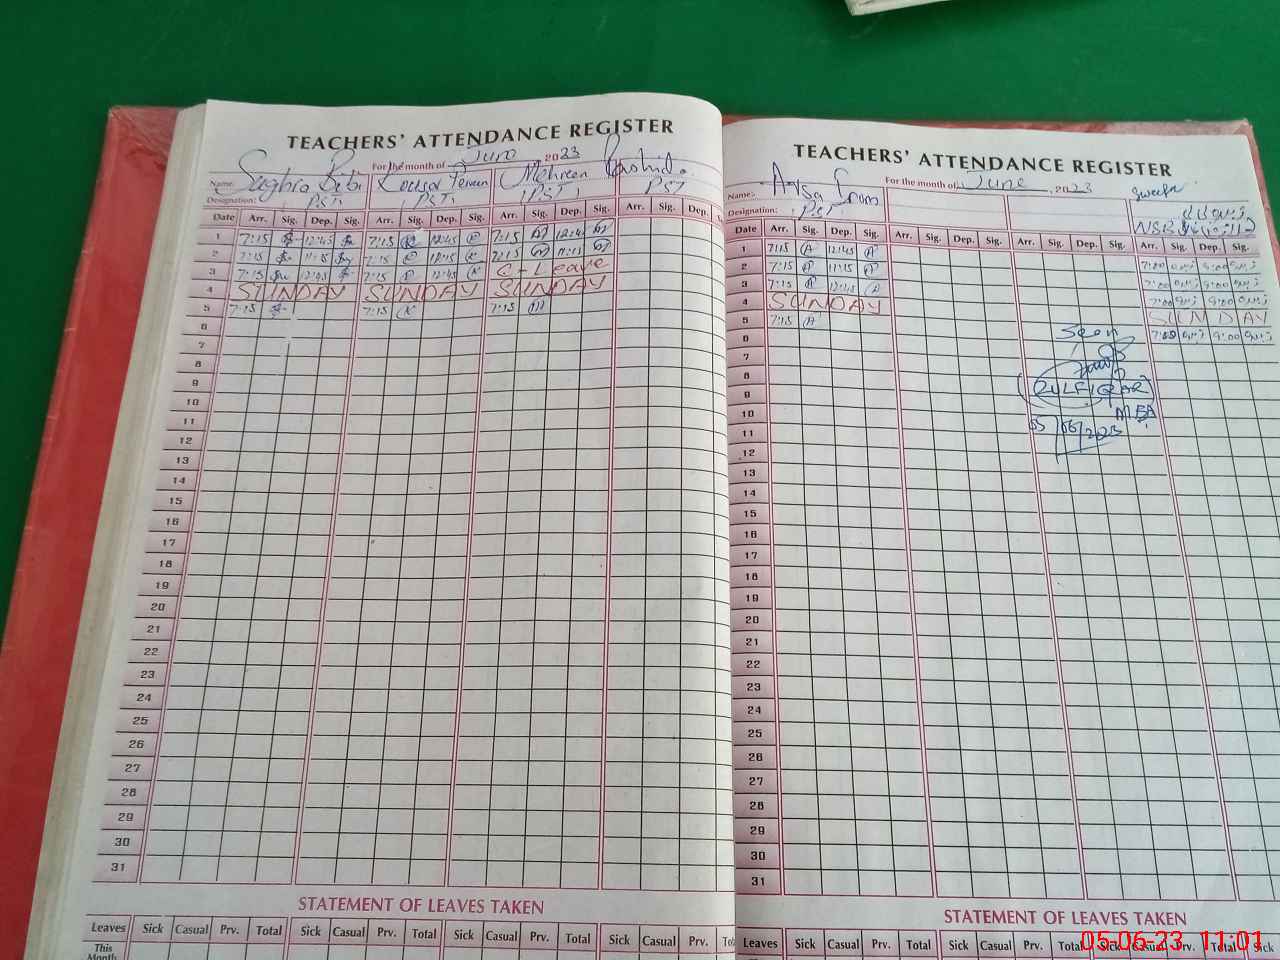 TEACHERS' ATTENDANCE REGISTER
For the month of June 2023
Name: Saghra Bibi Kousar Perveen Mehreen Rashid
Designation: PST PST PST PST
Date Arr. Sig. Dep. Sig. Arr. Sig. Dep. Sig. Arr. Sig. Dep. Sig. Arr. Sig. Dep.
1 7:15 12:45 7:15 12:45 7:15 12:45
2 7:15 11:15 7:15 12:15 7:15 11:15
3 7:15 12:45 7:15 12:45 C-Leave
4 SUNDAY SUNDAY SUNDAY
5 7:15 7:15 7:15
6
7
8
9
10
11
12
13
14
15
16
17
18
19
20
21
22
23
24
25
26
27
28
29
30
31
STATEMENT OF LEAVES TAKEN
Leaves Sick Casual Prv. Total Sick Casual Prv. Total Sick Casual Prv. Total Sick Casual Prv.
This Month
TEACHERS' ATTENDANCE REGISTER
For the month of June, 2023
Name: Aqsa
Designation: PST
Date Arr. Sig. Dep. Sig. Arr. Sig. Dep. Sig. Arr. Sig. Dep. Sig. Arr. Sig. Dep. Sig.
1 7:15 A 12:45 A 7:00 9:00
2 7:15 A 11:15 A 7:00 9:00
3 7:15 A 12:45 A 7:00 9:00
4 SUNDAY SUNDAY
5 7:15 A 7:00 9:00
6 Seen
7
8
9 (ZULFIQAR)
10 MEA
11 05/06/2023
12
13
14
15
16
17
18
19
20
21
22
23
24
25
26
27
28
29
30
31
STATEMENT OF LEAVES TAKEN
Leaves Sick Casual Prv. Total Sick Casual Prv. Total Sick Casual Prv. Total Sick
05-06-23 11:01